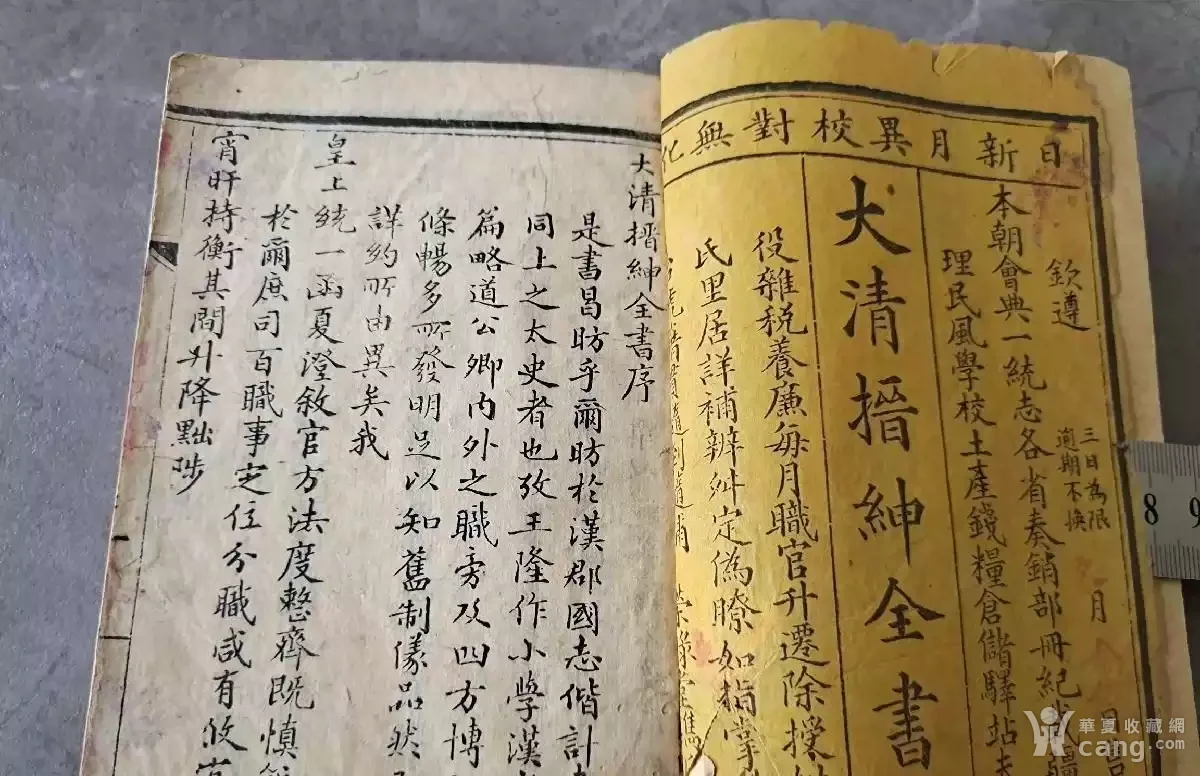 日新月異校對無
欽遵
三日為限
逾期不換
月
本朝會典一統志各省奏銷部冊紀
理民風學校土產錢糧倉儲驛站
大清搢紳全書
役雜稅養廉每月職官升遷除授
氏里居詳補辨舛定偽瞭如指掌
大清搢紳全書序
是書昌昉乎爾昉於漢郡國志偕計
同上之太史者也攷王隆作小學漢
篇略道公卿內外之職旁及四方博
條暢多所發明足以知舊制儀品然
詳約所由異矣我
皇上統一函夏澄敘官方法度整齊既慎
於爾庶司百職事定位分職咸有攸
宵旰持衡其間升降黜陟
8 9
華夏收藏網
cang.com